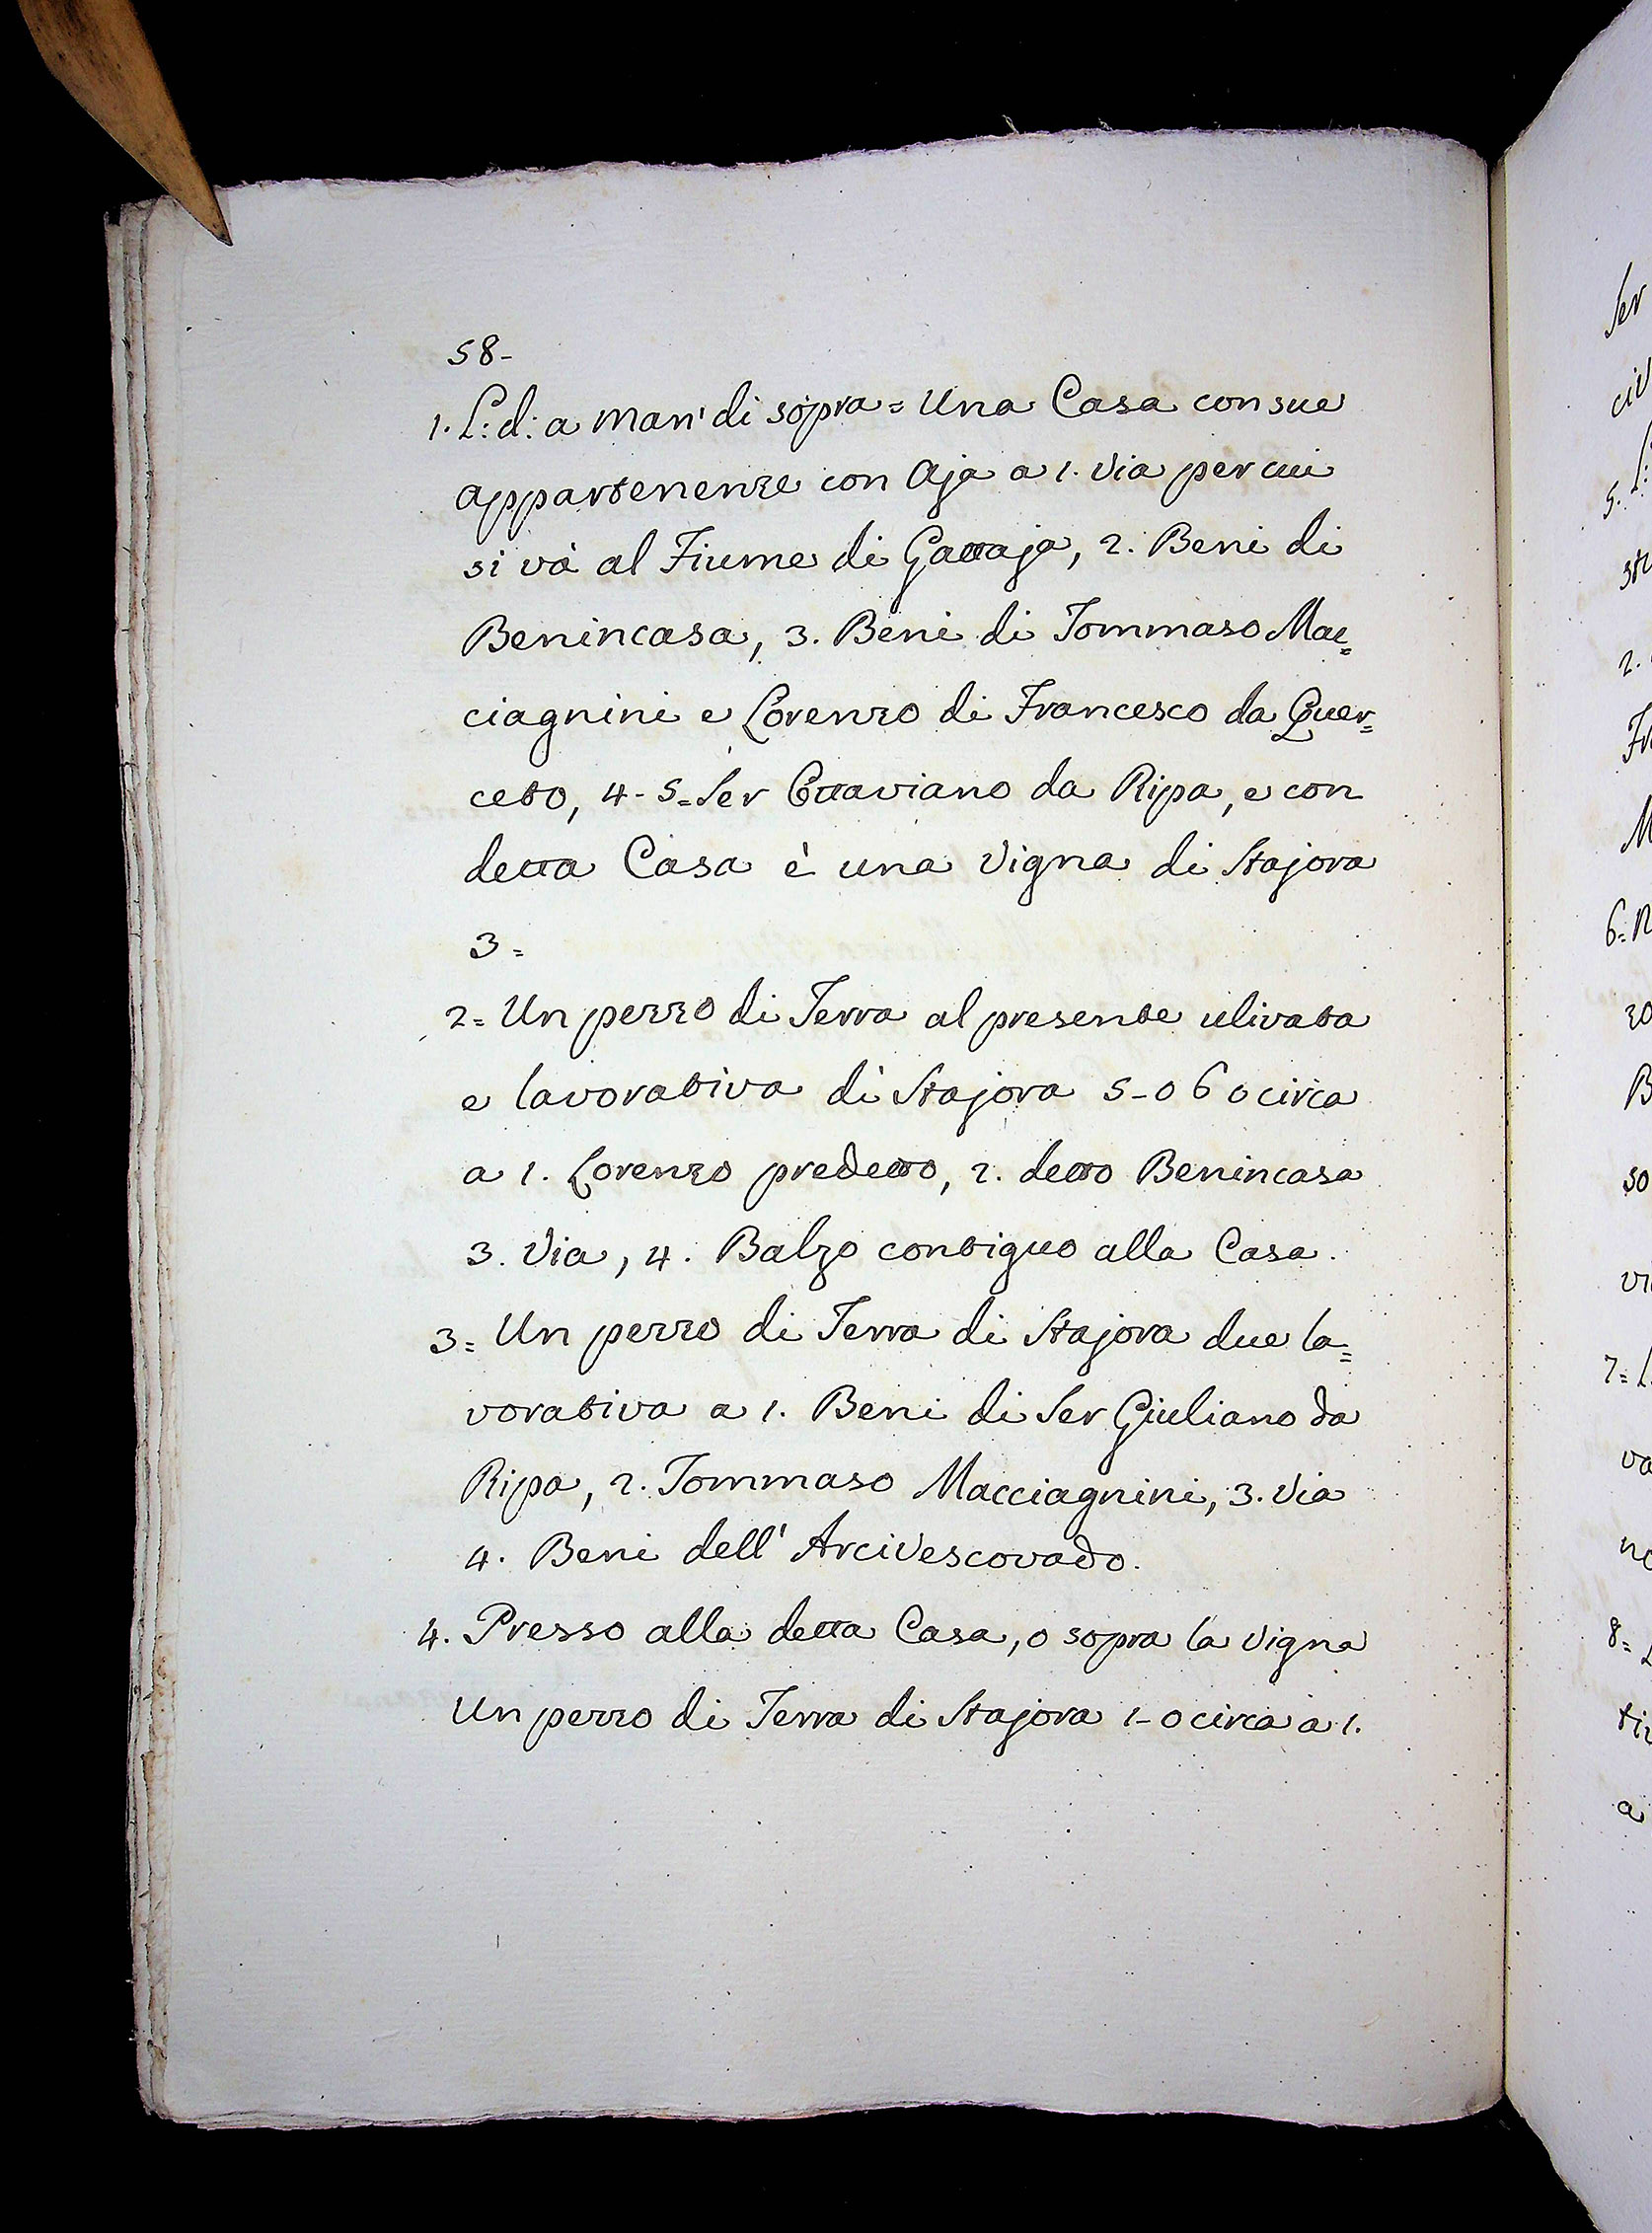 58-
1. L: d: a man' di sopra = Una Casa con sue
appartenenze con Aja a 1. Via per cui
si và al Fiume di Gattaja, 2. Beni di
Benincasa, 3. Beni di Tommaso Mac=
ciagnini e Lorenzo di Francesco da Quer=
ceto, 4- 5= Ser Ottaviano da Ripa, e con
detta Casa è una Vigna di Stajora
3=
2= Un pezzo di Terra al presente ulivata
e lavorativa di Stajora 5-0 6 0 circa
a 1. Lorenzo predetto, 2. detto Benincasa
3. Via, 4. Balzo contiguo alla Casa.
3= Un pezzo di Terra di Stajora due la=
vorativa a 1. Beni di Ser Giuliano da
Ripa, 2. Tommaso Macciagnini, 3. Via
4. Beni dell' Arcivescovado.
4. Presso alla detta Casa, o sopra la Vigna
Un pezzo di Terra di Stajora 1-0 circa a 1.
Ser
5. L:
2.
Fr
M
6= 
B
so
7= L
va
8=
a